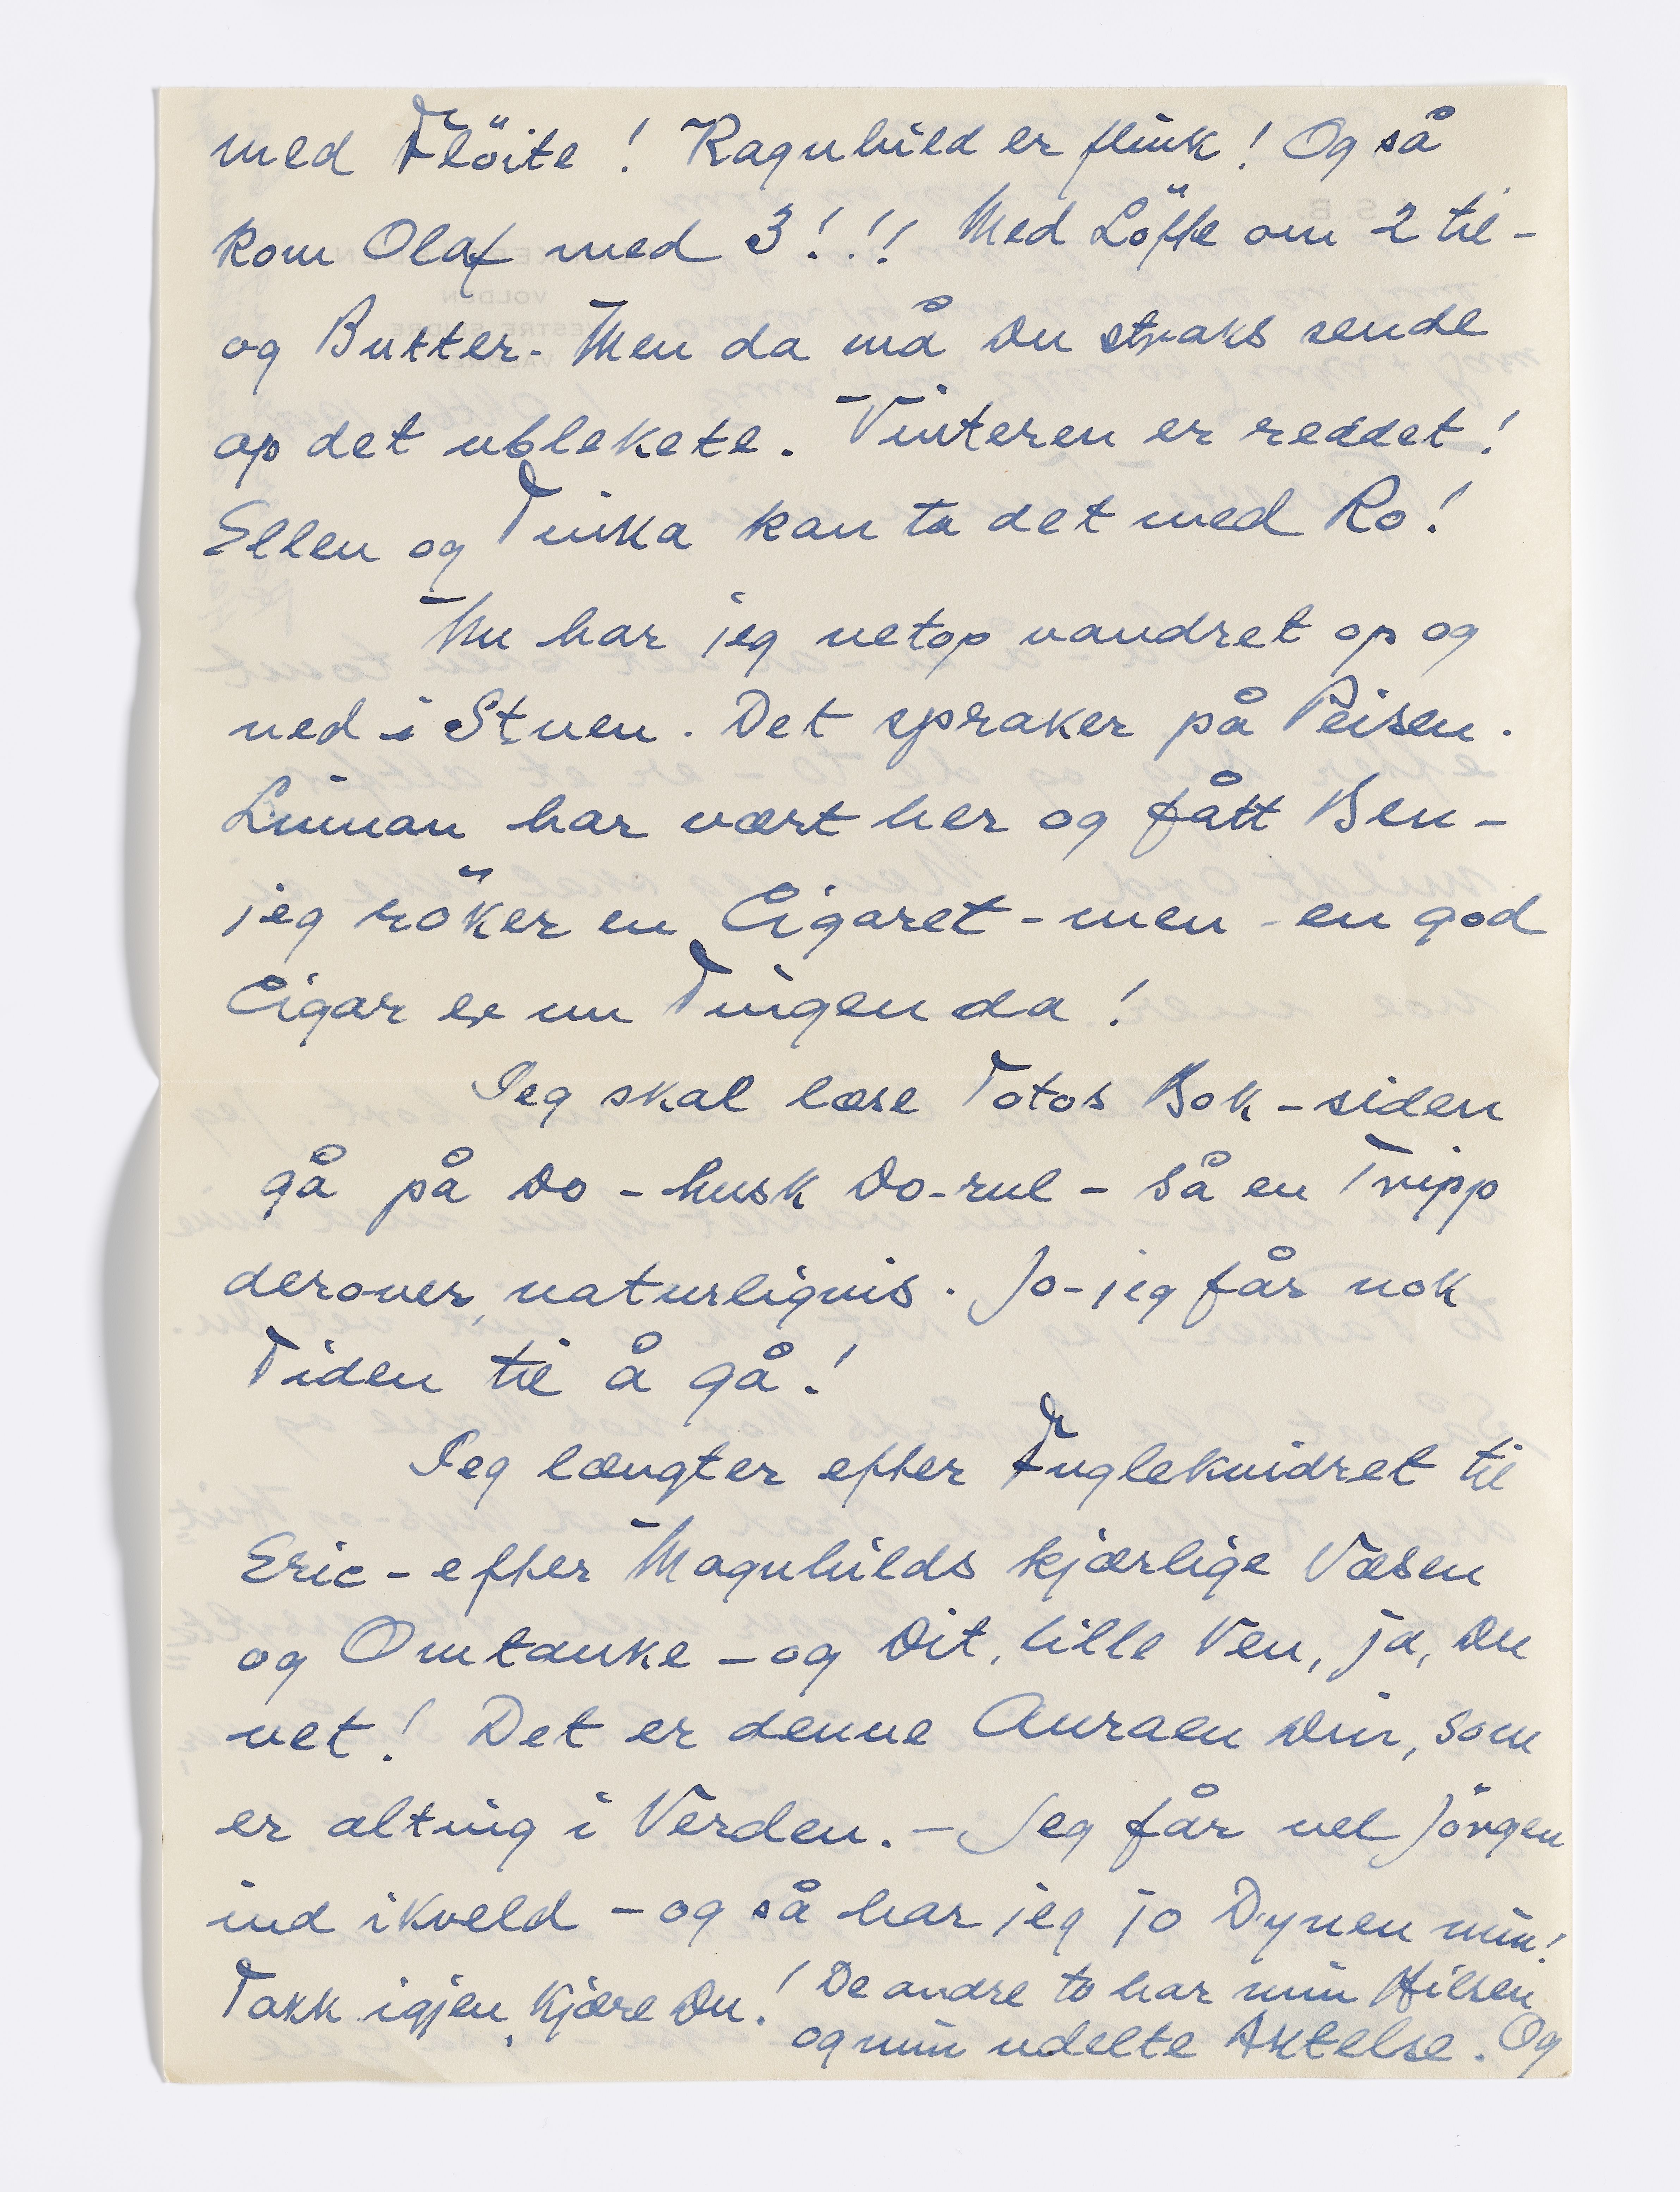 med Flöite! Ragnhild er flink! Og så
kom Olaf med 3!!! Med Löfte om 2 til -
og Butter. Men da må Du straks sende
op det ublekete. Vinteren er reddet!
Ellen og Tinka kan ta det med Ro!
Nu har jeg netop vandret op og
ned i Stuen. Det spraker på Peisen.
Linman har vært her og fått Ben -
jeg röker en Cigaret - men - en god
Cigar er nu Tingen da!
Jeg skal læse Totos Bok - siden
gå på Do - husk Do-rul - så en Tripp
derover, naturligvis. Jo - jeg får nok
Tiden til å gå!
Jeg længter efter Fuglekvidret til
Eric - efter Magnhilds kjærlige Væsen
og Omtanke - og Dit, lille Ven, ja, Du
vet! Det er denne Auraen Din, som
er alting i Verden. - Jeg får vel Jörgen
ind ikveld - og så har jeg jo Dynen min!
Takk igjen, Kjære Du! De andre to har min Hilsen
og min udelte Aktelse. Og